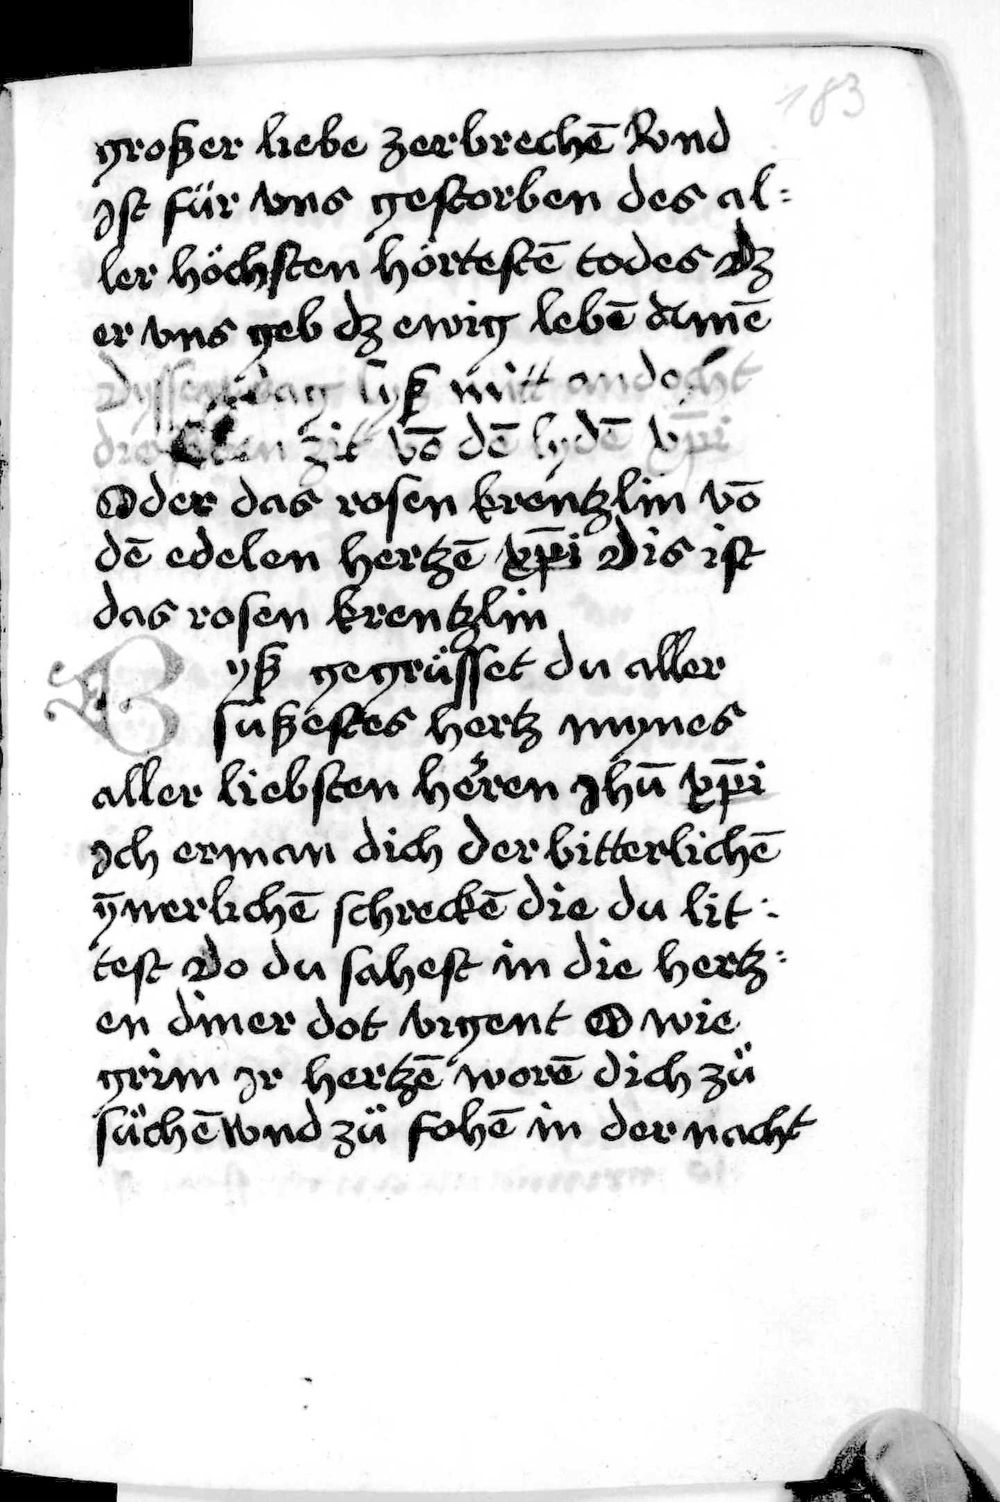 183
großer liebe zerbrechē Vnd
Jst für vns gestorben des al:
ler höchsten hörtestē todes Dz
er vns geb dz ewig lebē Amē
Dyssen lyß mitt andocht
zit vō dē lydē xp̄i
Oder das rosen krentzlin vō
dē edelen hertzē xp̄i Dis ist
das rosen krentzlin
Byß gegrüsset du aller
sußestes hertz mynes
aller liebsten herren Jhū xp̄i
Jch erman dich der bitterlichē
ȳnerlichē schreckē die du lit:
test Do du sahest in die hertz:
en diner dot vigent O wie
grim Jr hertzē worē dich zü
süchē vnd zü fohē in der nacht